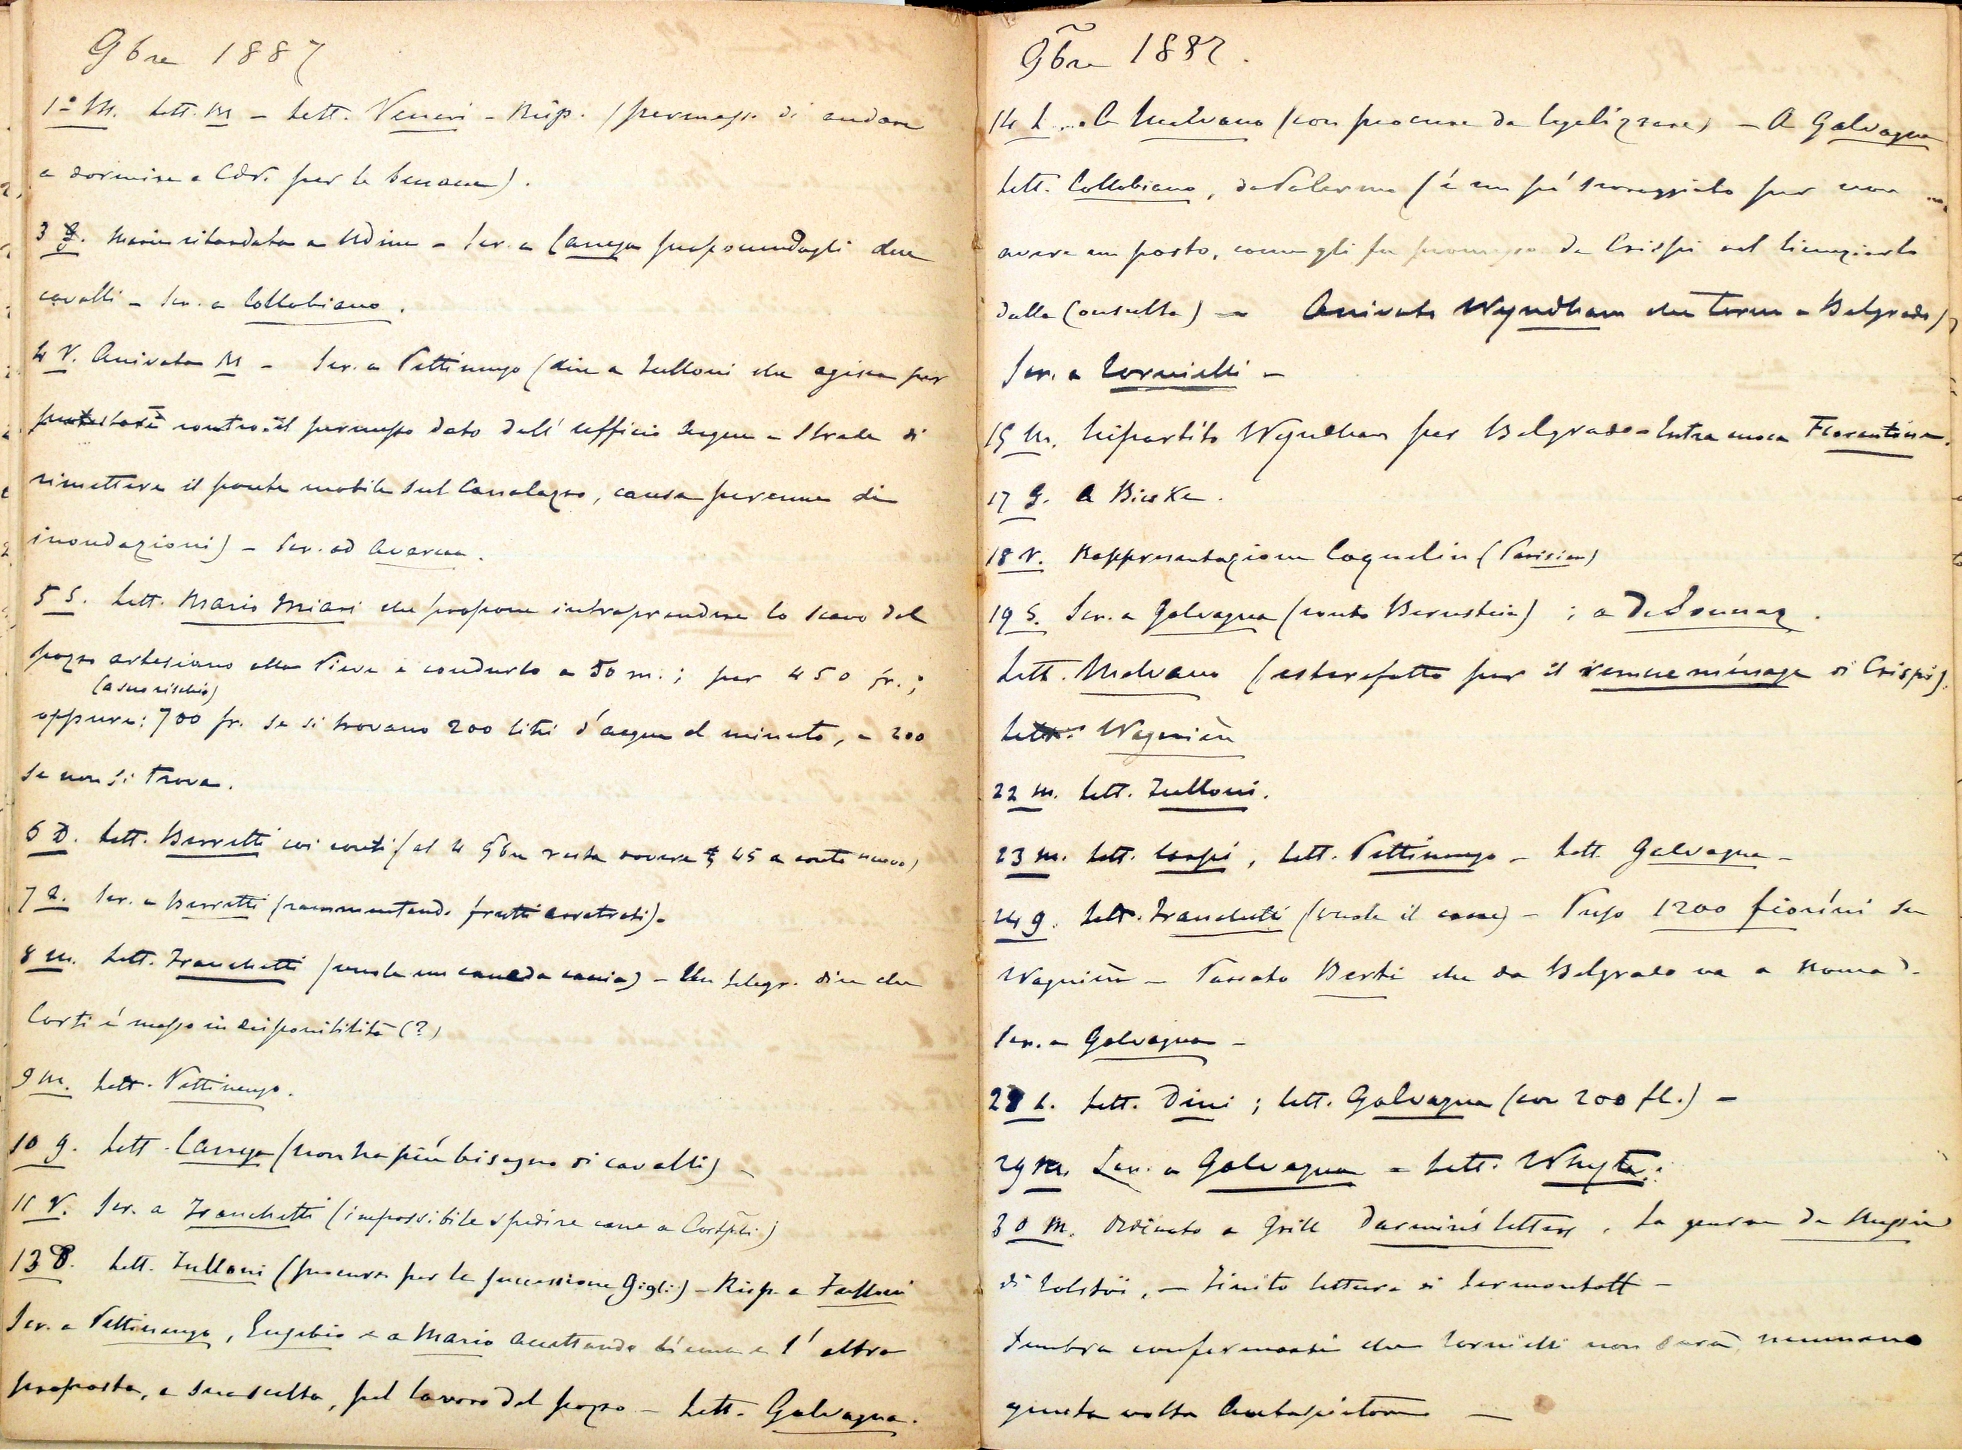 9bre 1887
1º M. Lett. M – Lett. Veneri – Risp. (permesso di andare
a dormire a Cdr. per le)
3 G. Maria ritardata a Udine – Scr. a Canega proponendogli due
cavalli – Scr. a Collobiano.
4 V. Arrivata M – Scr. a Pettinengo (dice a Zulloni che agisca per
protestare contro il permesso dato dall' ufficio acque e strade di
rimettere il ponte mobile sul Canalazzo, causa perenne di
inondazioni) – Scr. ad Avarna.
5 S. Lett. Mario Miari che propone intraprendere lo scavo del
pozzo artesiano alla Pieve e condurlo a 50 m.; per 450 fr.;
(a suo rischio)
oppure: 700 fr. se si trovano 200 litri d'acqua al minuto, e 200
se non si trova.
6 D. Lett. Berretti coi conti (al 4 9bre resta avere 45 a conto nuovo)
7 L. Scr. a Berretti (rammentando frutti arretrati).
8 M. Lett. Franchetti (vuole un cane da caccia) – Un telegr. dice che
Corti è messo in disponibilità (?)
9 M. Lett. Pettinengo.
10 G. Lett. Canega (non ha più bisogno di cavalli) –
11 V. Scr. a Franchetti (impossibile spedire cane a Costpli.)
13 D. Lett. Zulloni (procura per la successione Gigli) – Risp. a Zulloni
Scr. a Pettinengo, Eugebio e a Mario accettando l'altra
proposta, a sua scelta, pel lavoro del pozzo – Lett. Galvagna.
9bre 1887.
14 L. A Malvano (con procura da legalizzare) – A Galvagna
Lett. Collobiano, da Palermo (è un pò scoraggiato per non
avere un posto, come gli fu promesso da Crispi nel licenziarlo
dalla Consulta) – Arrivato Wyndham che torna a Belgrado)
Scr. a Tornielli –
15 M. Ripartito Wyndham per Belgrado – Entra cuoca Fiorentina.
17 G. A Bicske.
18 V. Rappresentazione Coquelin (Parisien)
19 S. Scr. a Galvagna (conto Bernstein); a De Sonnaz.
Lett. Malvano (esterefatto per il remue ménage di Crispi).
Lett. Wagnière
22 M. Lett. Zulloni.
23 M. Lett. Carpi, Lett. Pettinengo – Lett. Galvagna –
24 G. Lett. Franchetti (vuole il cane) – Preso 1200 fiorini da
Wagnière – Passato Berti che da Belgrado va a Roma.
Scr. a Galvagna –
28 L. Lett. Dini; Lett. Galvagna (con 200 fl.) –
29 M. Scr. a Galvagna – Lett. Whyte.
30 M. Ordinato a Grill Darwin's letters, La guerra da Russia
di Tolstoï, – Finito lettura di Lermontoff –
Sembra confermarsi che Tornielli non sarà nemmeno
questa volta Ambasciatore –